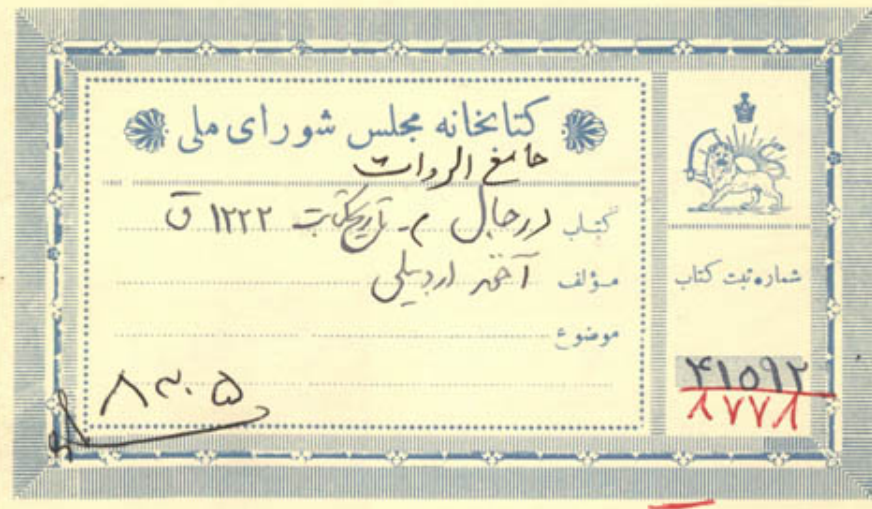 کتابخانه مجلس شورای ملی
جامع الروات
کتاب (رجال) - تاریخ کتابت ۱۲۲۲ ق
مؤلف اردبیلی
موضوع
۸۳۰۵
شماره ثبت کتاب
۴۱۵۹۲
۸۷۷۸